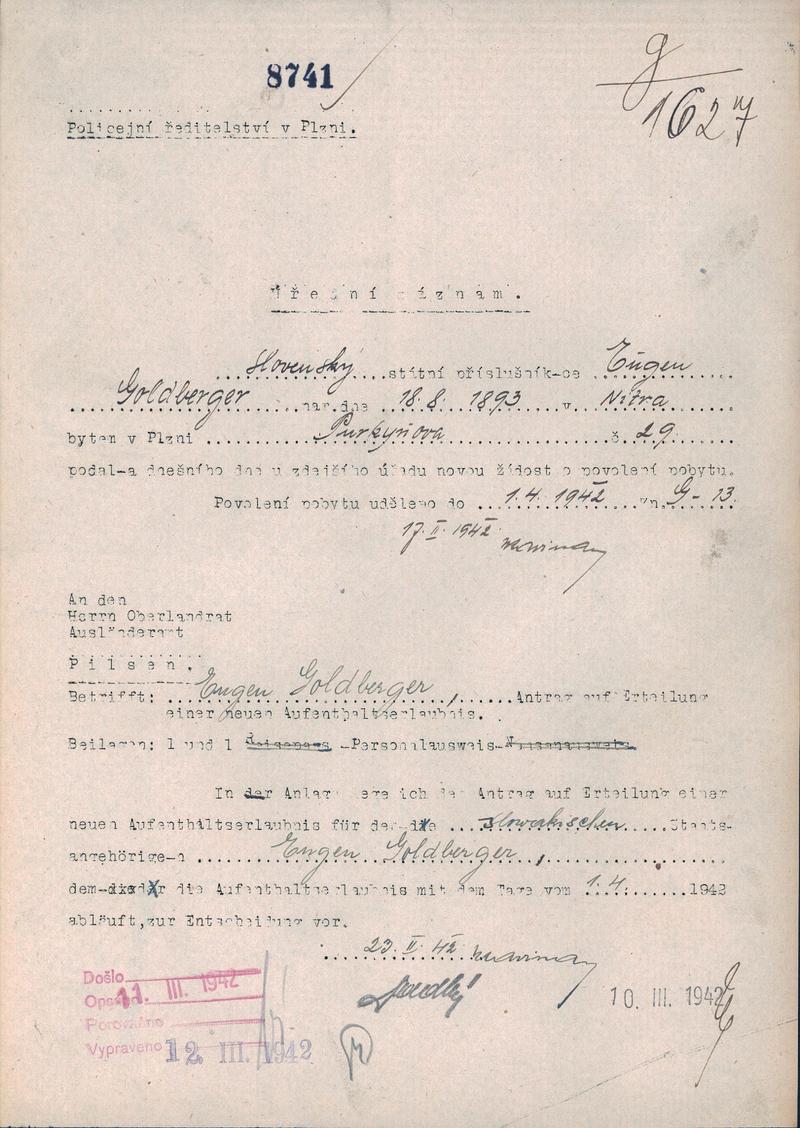 8741
g
1627
Policejní ředitelství v Plzni.
Úřední záznam.
slovenský státní příslušník-ce Eugen
Goldberger nar. dne 18.8. 1893 v Nitra
bytem v Plzni Purkyňova č. 29
podal-a dnešního dne u zdejšího úřadu novou žádost o povolení pobytu.
Povolení pobytu uděleno do 1.4. 1942 zn. G-13.
17.II.1942
An den
Herrn Oberlandrat
Ausländeramt
Pilsen.
Betrifft: Eugen Goldberger, Antrag auf Erteilung
einer neuen Aufenthaltserlaubnis.
Beilagen: 1 und 1 Reisepass -Personalausweis-
In der Anlage lege ich den Antrag auf Erteilung einer
neuen Aufenthaltserlaubnis für den-die slowakischen Staats-
angehörige-n Eugen Goldberger,
dem-der die Aufenthaltserlaubnis mit dem Tage vom 1.4. 1942
abläuft, zur Entscheidung vor.
23.II.42
Došlo
11. III. 1942
Porovnáno
Vypraveno 12. III. 1942
10. III. 1942